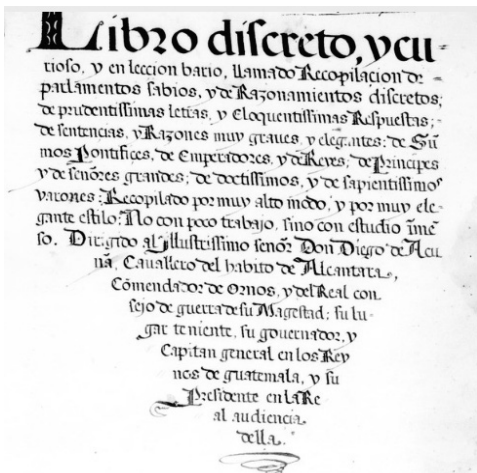 Libro discreto, y cu-
rioso, y en leccion bario, llamado Recopilacion de
parlamentos sabios, y de Razonamientos discretos;
de prudentissimas letras, y Eloquentissimas Respuestas;
de sentencias, y Razones muy graues, y elegantes: de Sũ
mos Pontifices, de Emperadores, y de Reyes; de Principes
y de señores grandes; de doctissimos, y de sapientissimos
varones: Recopilado por muy alto modo, y por muy ele-
gante estilo: No con poco trabajo, sino con estudio ĩmẽ
so. Dirigido al Jllustrissimo señor Don Diego de Acu
ña, Cauallero del habito de Alcantara,
Cõmendador de Ornos, y del Real con
sejo de guerra de su Magestad; su lu-
gar teniente, su gouernador, y
Capitan general en los Rey
nos de guatemala, y su
Presidente en la Re
al audiencia
della.